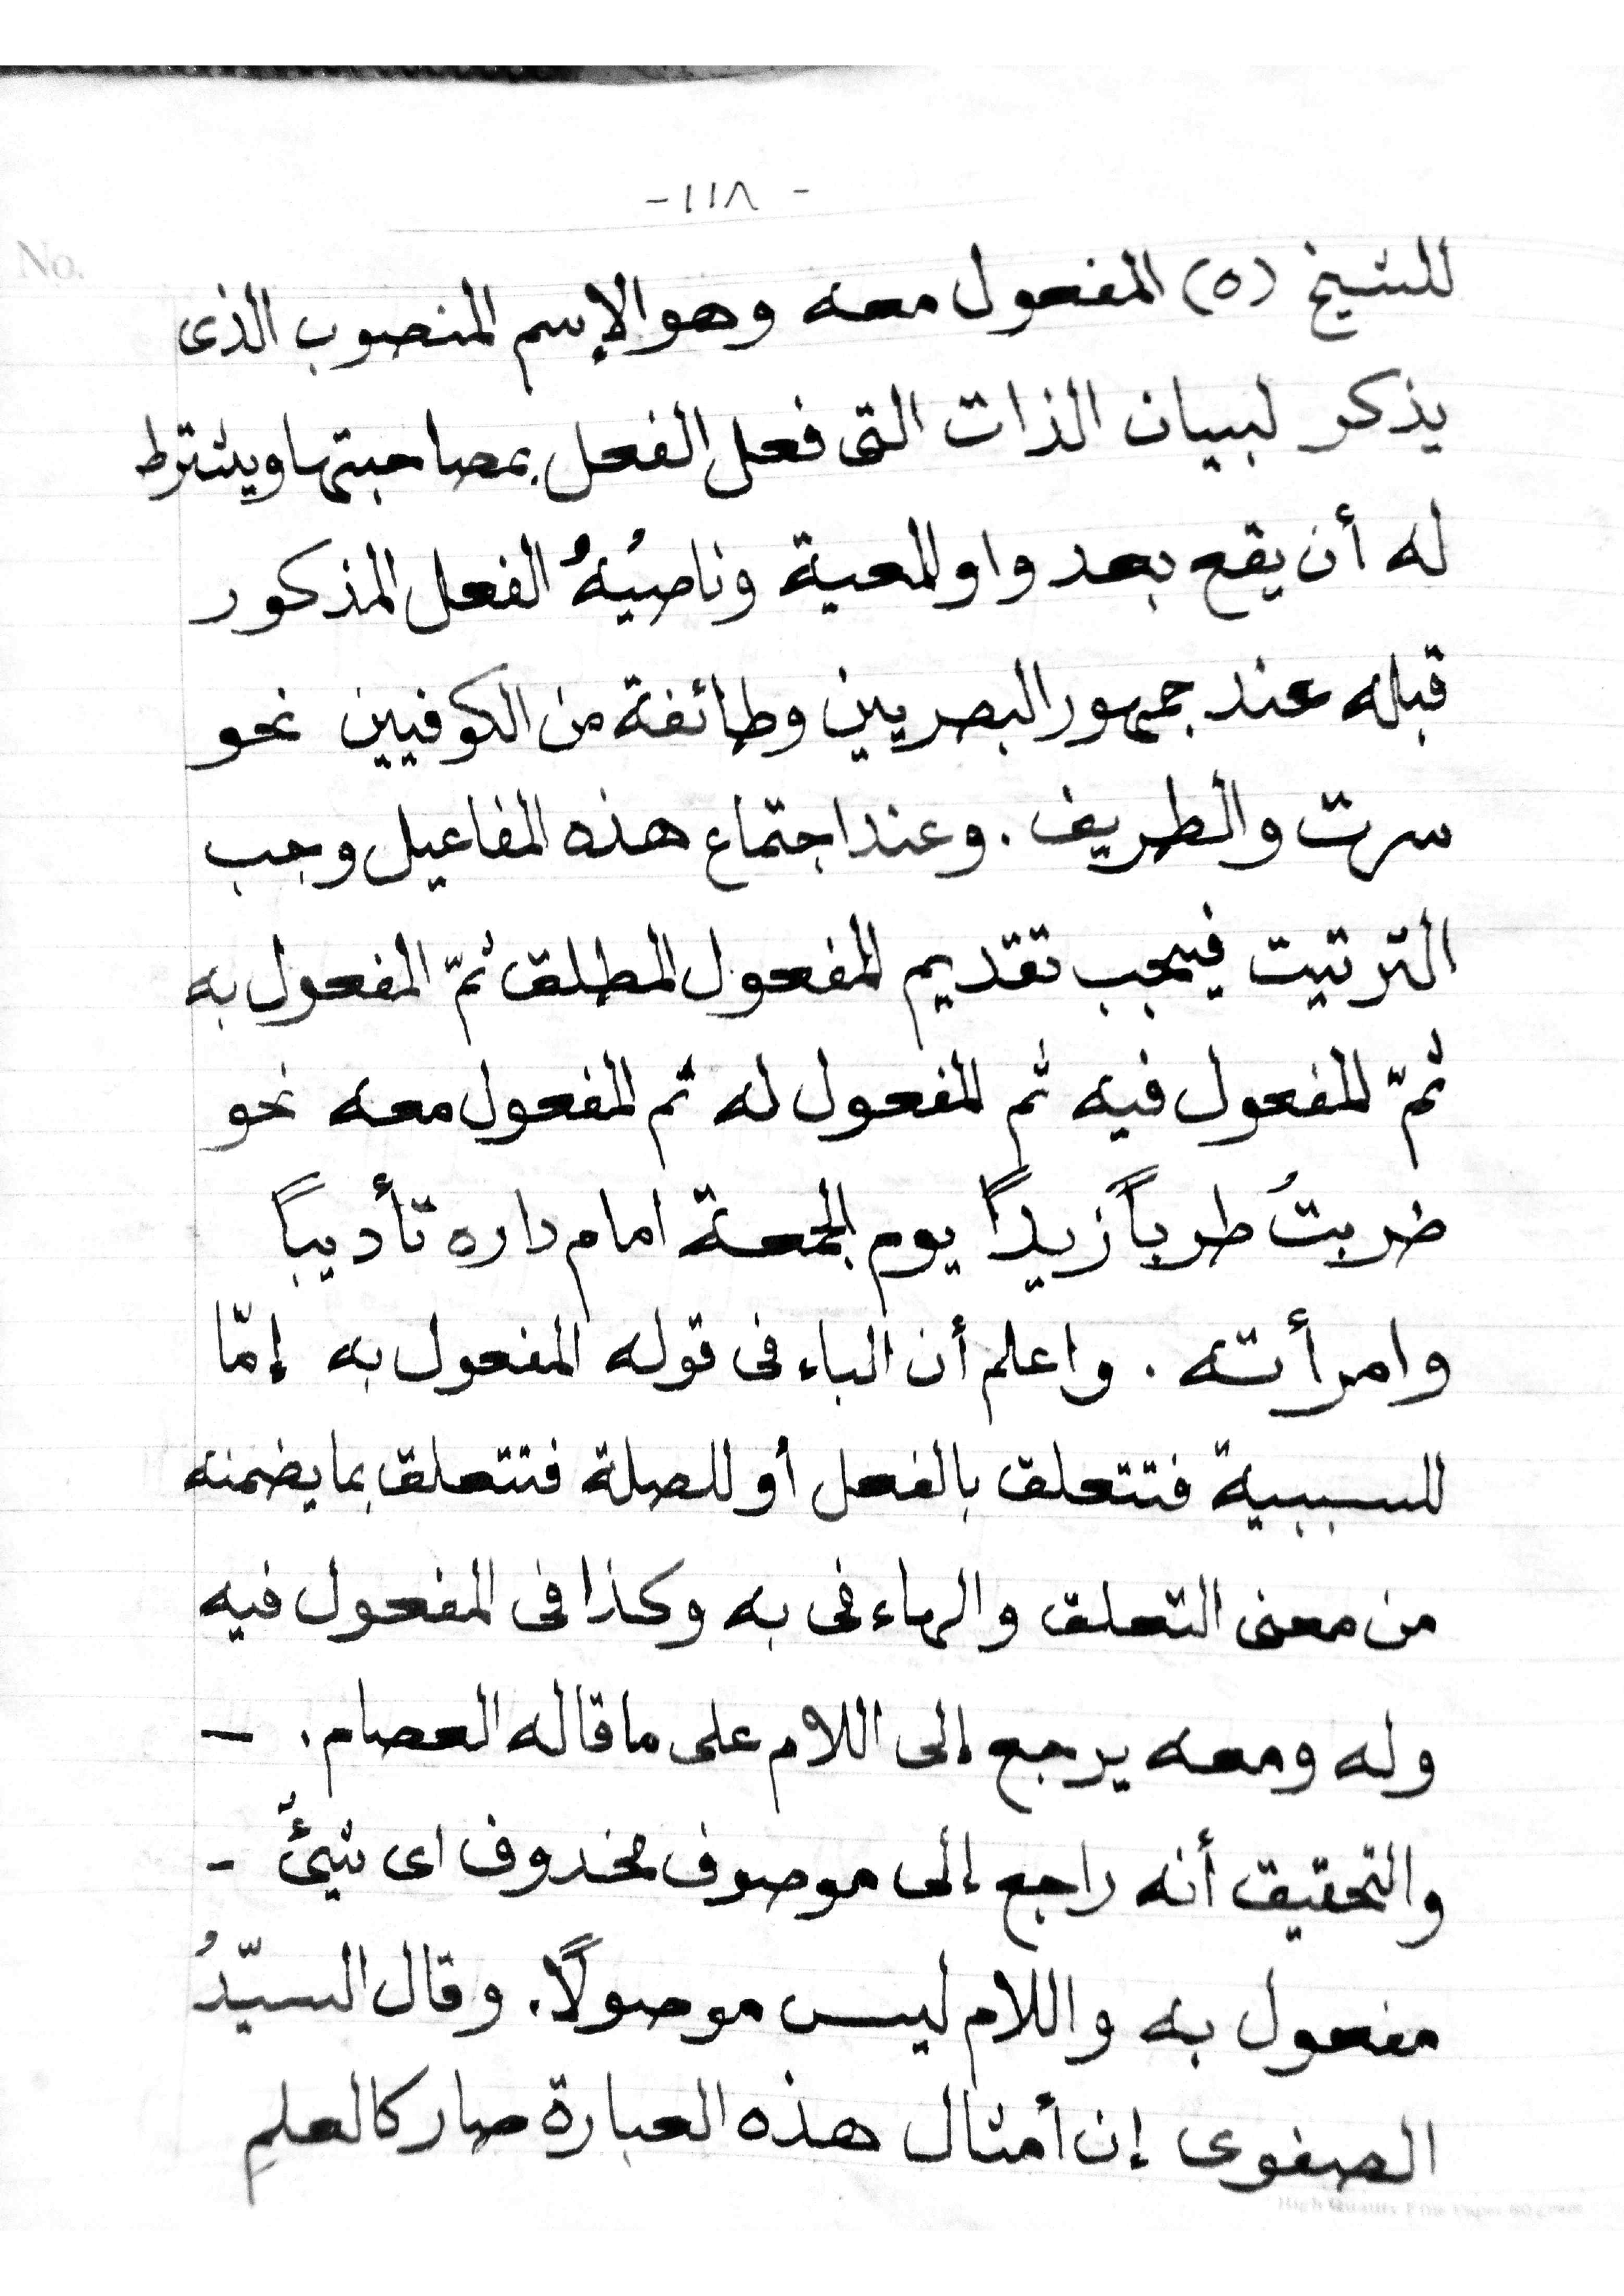 - ١١٨ -
No.
للشيخ (٥) المفعول معه وهو الإسم المنصوب الذى
يذكر لبيان الذات التى فعل الفعل بمصاحبتها ويشترط
له أن يقع بعد واو المعية وناصبُهُ الفعل المذكور
قبله عند جمهور البصريين وطائفة من الكوفيين نحو
سرت والطريف . وعند اجتماع هذه المفاعيل وجب
الترتيت فيجب تقديم المفعول المطلق ثمّ المفعول به
ثمّ المفعول فيه ثم المفعول له ثم المفعول معه نحو
ضربتُ طرباً زيداً يوم الجمعة امام داره تأديباً
وامرأته . واعلم أن الباء فى قوله المفعول به إمّا
للسببية فتتعلق بالفعل أو للصلة فتتعلق بما يضمنه
من معنى التعلق والهاء فى به وكذا فى المفعول فيه
وله ومعه يرجع إلى اللام على ما قاله العصام . -
والتحقيق أنه راجع إلى موصوف مخدوف اى شيئٌ -
مفعول به واللام ليس موصولًا. وقال السيّدُ
الصفوى إن أمثال هذه العبارة صار كالعلم
High Quality Fine Paper 80 gram